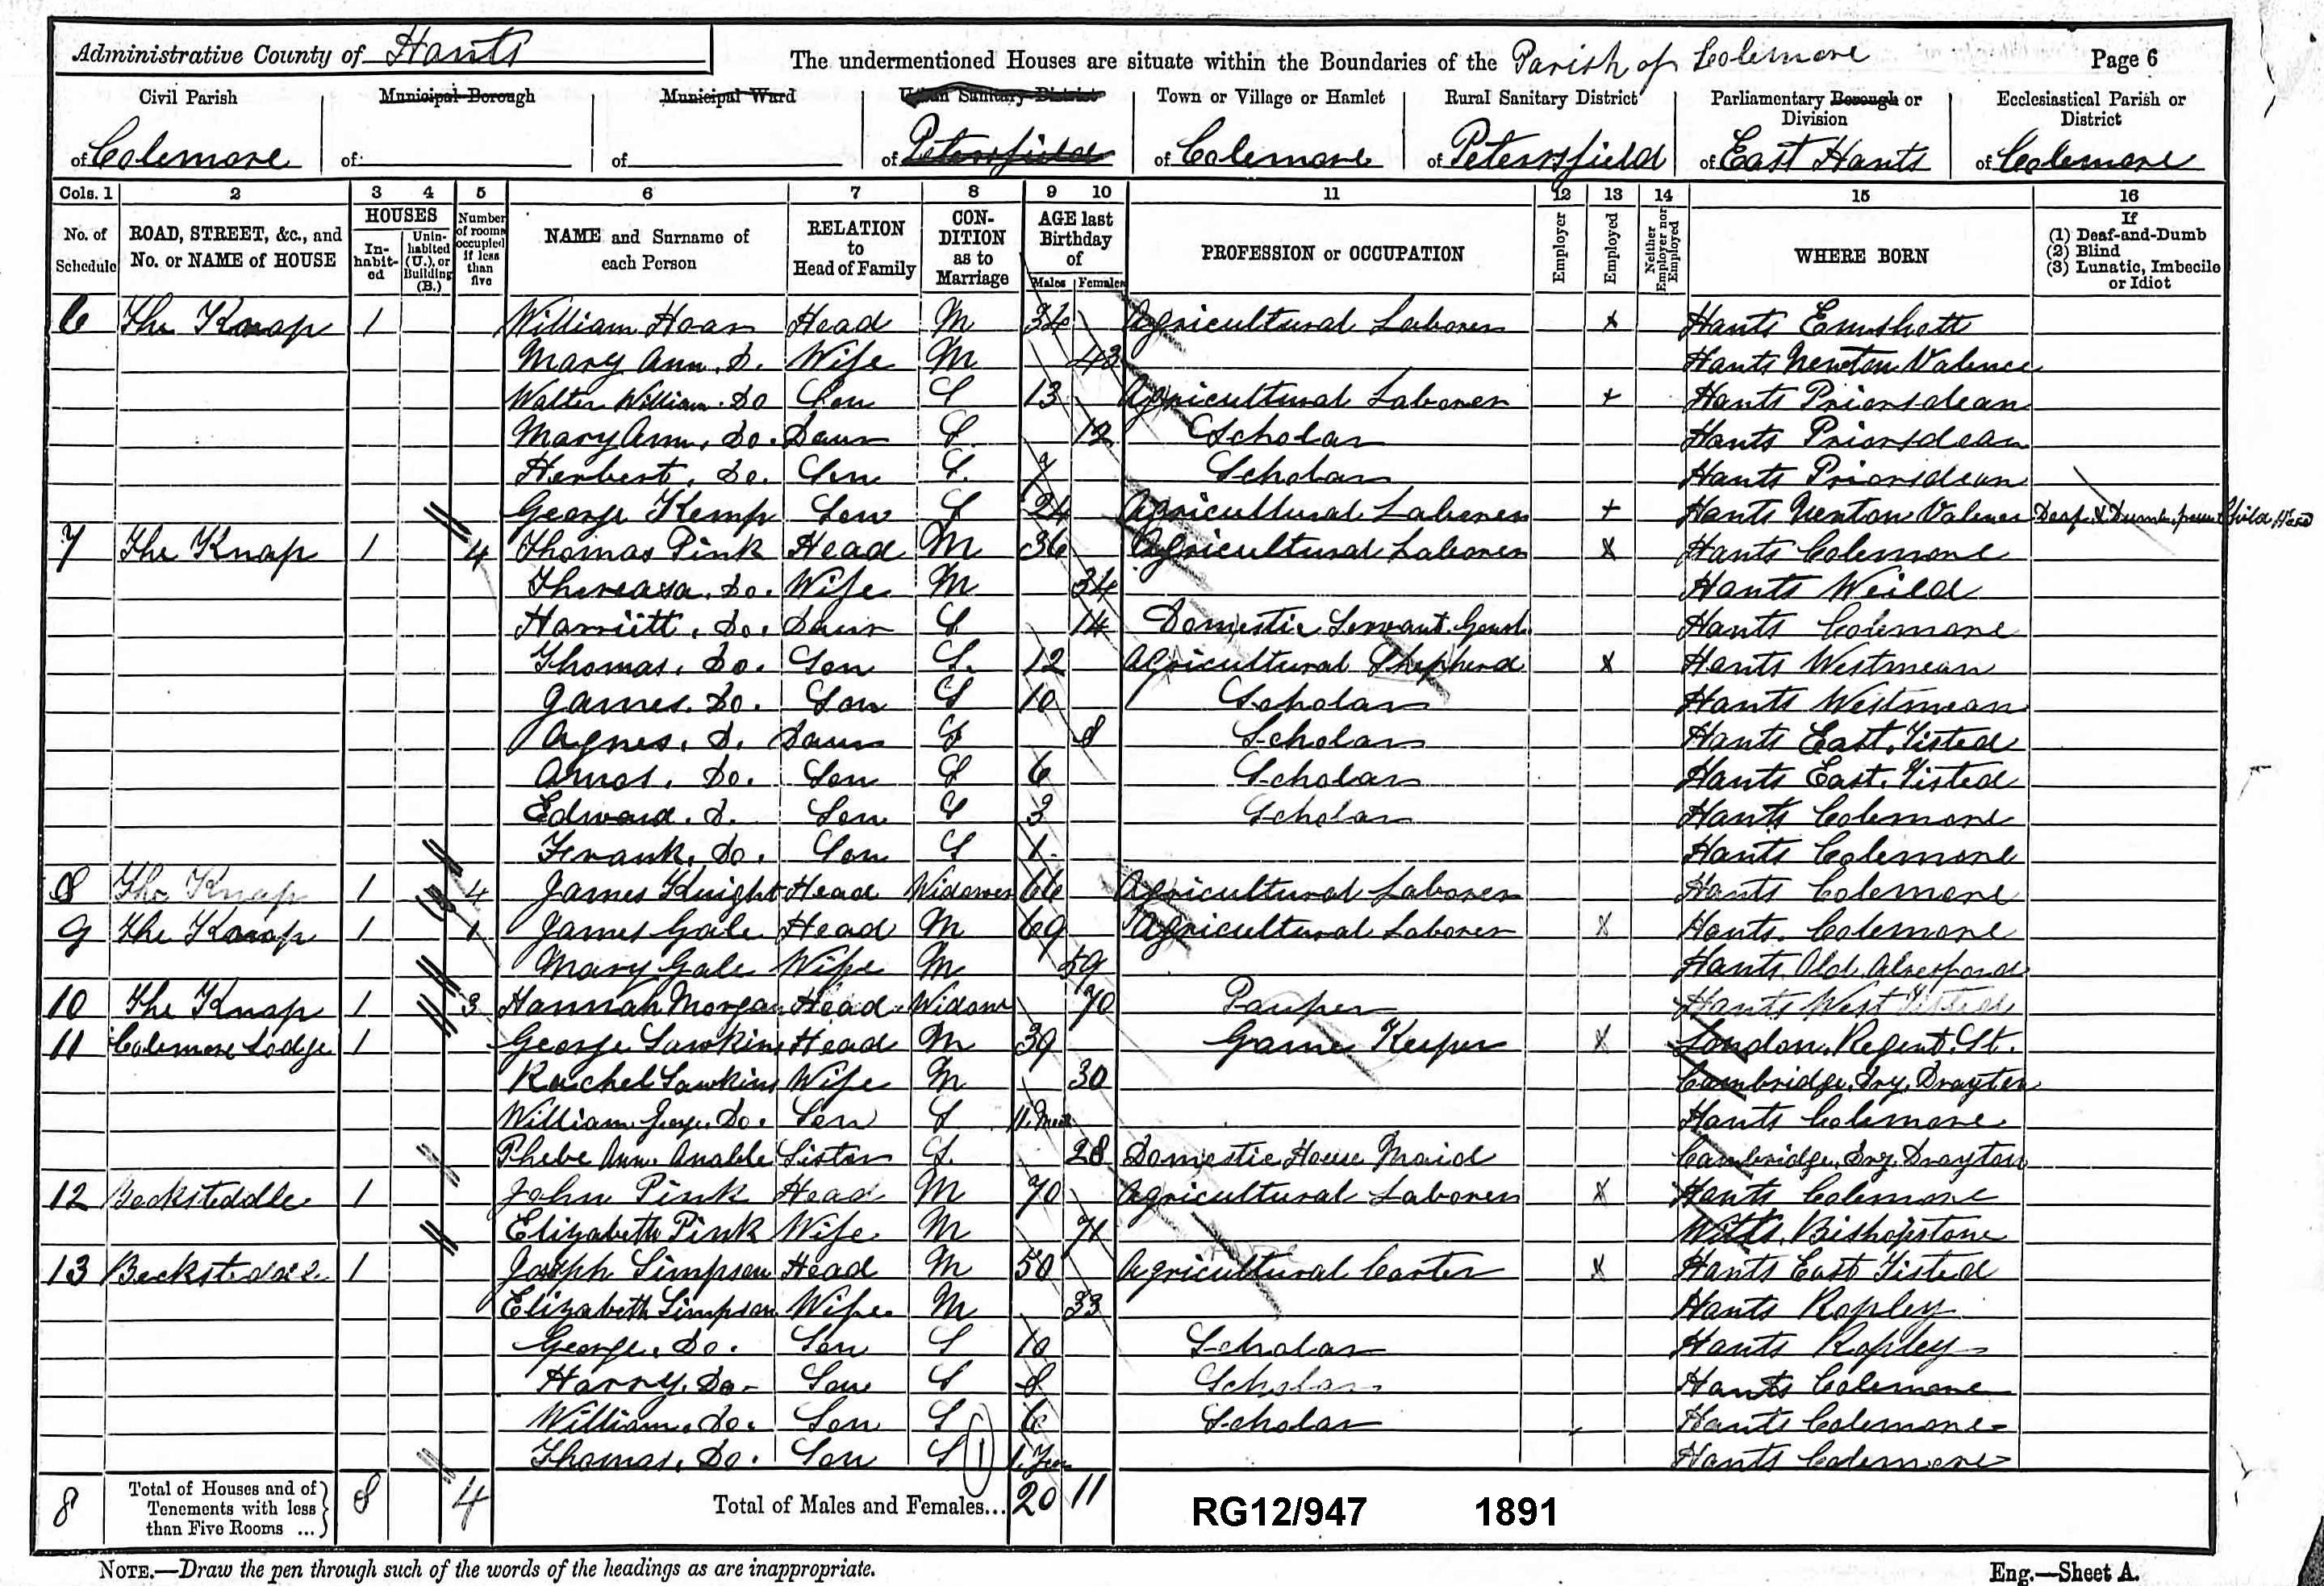 Administrative County of Hants The undermentioned Houses are situate within the Boundaries of the Parish of Colemore Page 6
Civil Parish Municipal Borough Municipal Ward Urban Sanitary District Town or Village or Hamlet Rural Sanitary District Parliamentary Borough or Division Ecclesiastical Parish or District
of Colemore of of of Petersfield of Colemore of Petersfield of East Hants of Colemore
Cols. 1 2 3 4 5 6 7 8 9 10 11 12 13 14 15 16
No. of Schedule ROAD, STREET, &c., and No. or NAME of HOUSE HOUSES In-habit-ed Unin-habited (U.), or Building (B.) Number of rooms occupied if less than five NAME and Surname of each Person RELATION to Head of Family CON-DITION as to Marriage AGE last Birthday of Males Females PROFESSION or OCCUPATION Employer Employed Neither Employer nor Employed WHERE BORN If (1) Deaf-and-Dumb (2) Blind (3) Lunatic, Imbecile or Idiot
6 The Knap 1 William Hoar Head M 34 Agricultural Laborer x Hants Emshott
Mary Ann. D. Wife M 43 Hants Newton Valence
Walter William. Do Son S 13 Agricultural Laborer + Hants Priorsdean
Mary Ann. Do. Daur S. 12 Scholar Hants Priorsdean
Herbert. Do. Son S. 7 Scholar Hants Priorsdean
George Kemp Son S 24 Agricultural Laborer + Hants Newton Valence Deaf & Dumb from Childhood
7 The Knap 1 4 Thomas Pink Head M 36 Agricultural Laborer x Hants Colemore
Thereasa. Do. Wife M 34 Hants Weild
Harriett. Do. Daur S 14 Domestic Servant Genl. Hants Colemore
Thomas. Do. Son S. 12 Agricultural Shepherd x Hants Westmean
James. Do. Son S 10 Scholar Hants Westmean
Agnes. D. Daur S 8 Scholar Hants East. Tisted
Amos. Do. Son S 6 Scholar Hants East. Tisted
Edward. D. Son S 3 Scholar Hants Colemore
Frank. Do. Son S 1. Hants Colemore
8 The Knap 1 4 James Knight Head Widower 66 Agricultural Laborer Hants Colemore
9 The Knap 1 James Gale Head M 69 Agricultural Laborer x Hants. Colemore
Mary Gale Wife M 59 Hants. Old. Alresford
10 The Knap 1 3 Hannah Morgan Head Widow 70 Pauper Hants West Tisted
11 Colemore Lodge 1 George Sawkins Head M 39 Game Keeper x London. Regent. St.
Rachel Sawkins Wife M 30 Cambridge. Dry. Drayton
William George. Do. Son S 11. Mon Hants Colemore.
Phebe Ann. Anable Sister S. 28 Domestic House Maid Cambridge. Dry. Drayton
12 Becksteddle 1 John Pink Head M 70 Agricultural Laborer x Hants Colemore
Elizabeth Pink Wife. M 71 Wilts. Bishopstone
13 Becksteddle 1 Joseph Simpson Head M 50 Agricultural Carter x Hants East Tisted
Elizabeth Simpson Wife. M 33 Hants Ropley
George. Do. Son S 10 Scholar Hants Ropley
Harry. Do. Son S 8 Scholar Hants Colemore
William. Do. Son S 6 Scholar Hants Colemore
Thomas. Do. Son S 1 1. Year Hants Colemore
8 Total of Houses and of Tenements with less than Five Rooms ... 8 4 Total of Males and Females... 20 11 RG12/947 1891
NOTE.—Draw the pen through such of the words of the headings as are inappropriate. Eng.—Sheet A.